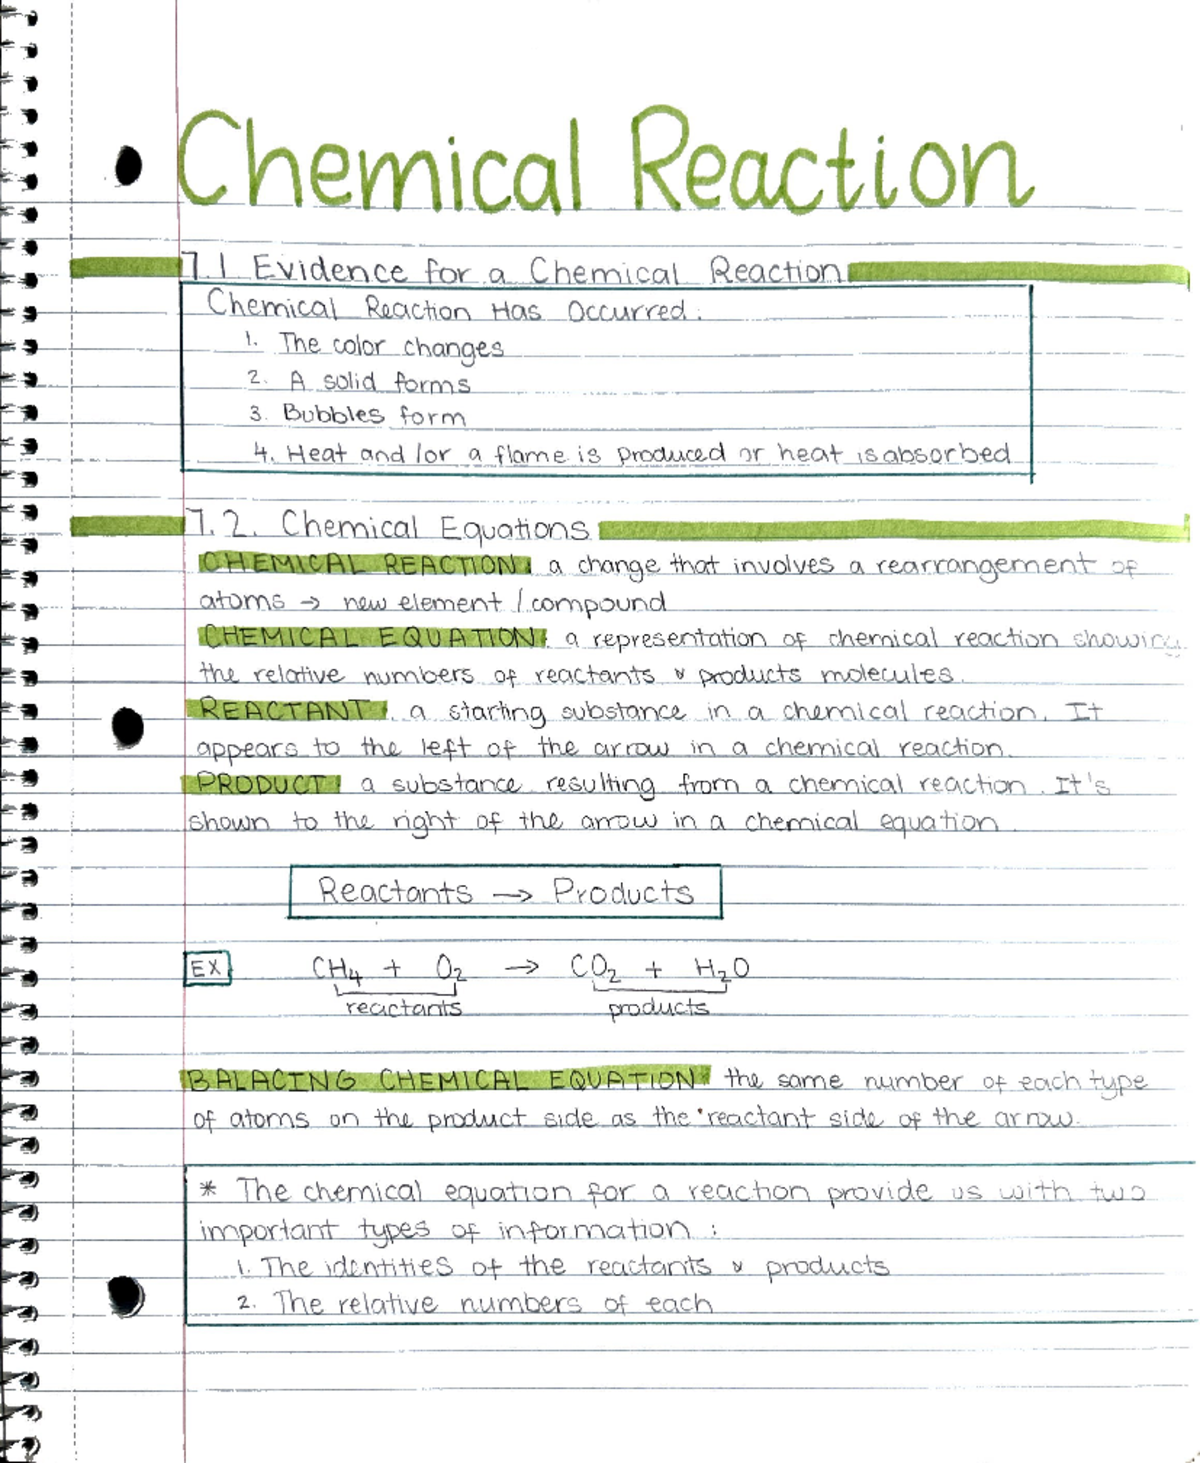 Chemical Reaction
7.1 Evidence for a Chemical Reaction
Chemical Reaction Has Occurred:
1. The color changes
2. A solid forms
3. Bubbles form
4. Heat and/or a flame is produced or heat is absorbed
7.2. Chemical Equations
CHEMICAL REACTION: a change that involves a rearrangement of
atoms → new element / compound
CHEMICAL EQUATION: a representation of chemical reaction showing
the relative numbers of reactants & products molecules.
REACTANT: a starting substance in a chemical reaction. It
appears to the left of the arrow in a chemical reaction.
PRODUCT: a substance resulting from a chemical reaction. It's
shown to the right of the arrow in a chemical equation.
Reactants → Products
EX CH₄ + O₂ → CO₂ + H₂O
reactants products
BALACING CHEMICAL EQUATION: the same number of each type
of atoms on the product side as the reactant side of the arrow.
* The chemical equation for a reaction provide us with two
important types of information:
1. The identities of the reactants & products
2. The relative numbers of each